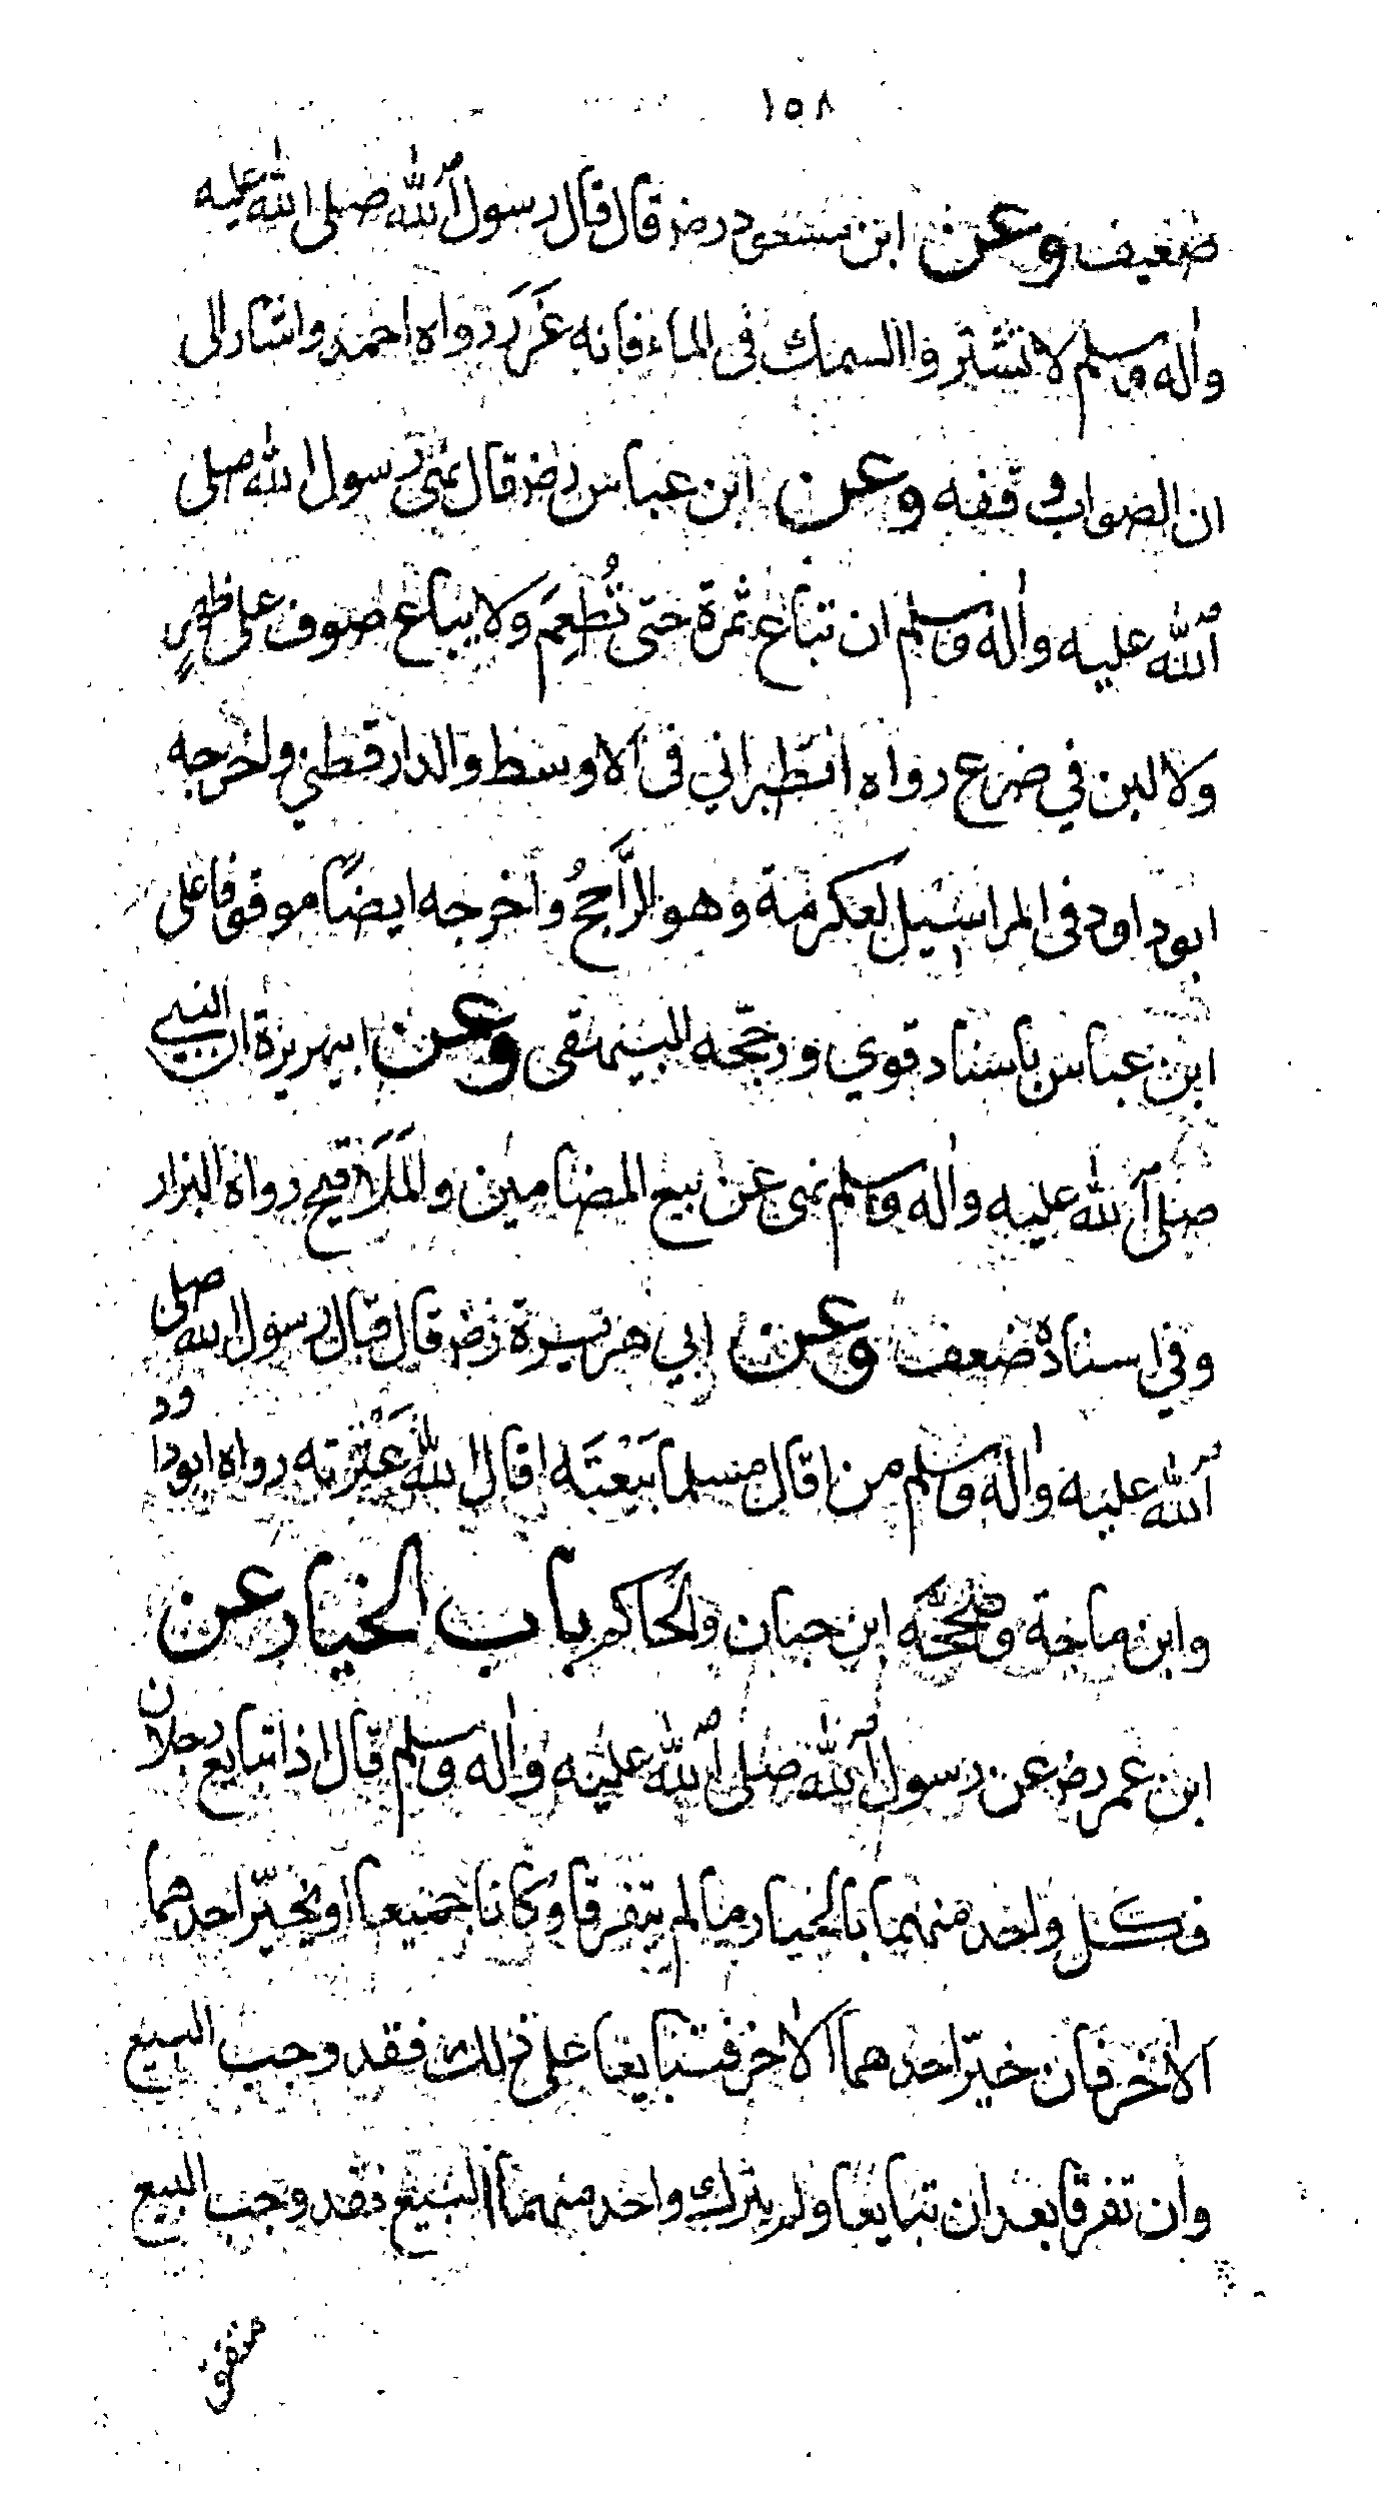 ١٥٨
ضعيف وعن ابن مسعود رضـ قال قال رسول الله صلى الله عليه
واله وسلم لا تشتروا السمك فى الماء فانه غَرَرَ رواه احمد واشار الى
ان الصواب وقفه وعن ابن عباس رضـ قال نهى رسول الله صلى
الله عليه واله وسلم ان تباع ثمرة حتى تُطعِمَ ولا يباع صوف على ظهرٍ
ولا لبن في ضرع رواه الطبراني فى الاوسط والدارقطني واخرجه
ابوداود فى المراسيل لعكرمة وهو الرَّاجحُ واخرجه ايضًا موقوفا على
ابن عباس باسناد قوي ورجّحه البيهقى وعن ابيهريرة ان النبي
صلى الله عليه واله وسلم نهى عن بيع المضامين والمَلَاقيح رواه البزار
وفي اسناده ضعف وعن ابي هريرة رضـ قال قال رسول الله صلى
الله عليه واله وسلم من اقال مسلما بَيْعَتَه اقال الله عَثْرته رواه ابوداود
وابن ماجة وصححه ابن حبان والحاكم باب الخيار عن
ابن عمر رضـ عن رسول الله صلى الله عليه واله وسلم قال اذا تبايع رجلان
فكل واحد منهما بالخيار ما لم يتفرقا وكانا جميعا او يخيّر احدهما
الاخر فان خيّر احدهما الاخر فتبايعا على ذلك فقد وجب البيع
وان تفرقا بعد ان تبايعا ولم يترك واحد منهما البيع فقد وجب البيع
متفق